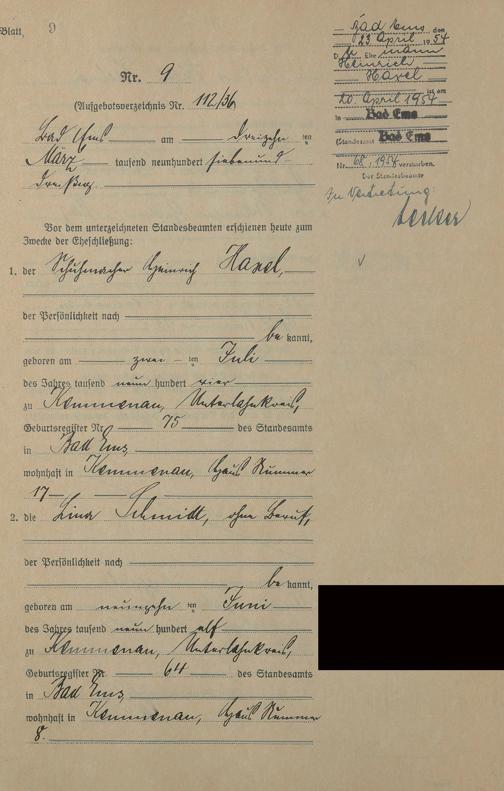 Blatt 9
Nr. 9
(Aufgebotsverzeichnis Nr. 112/36
Bad Ems am dreizehn ten
März tausend neunhundert siebenund-
dreißig.
Vor dem unterzeichneten Standesbeamten erschienen heute zum
Zwecke der Eheschließung:
1. der Schuhmacher Heinrich Haxel,
der Persönlichkeit nach
be kannt,
geboren am zwei ten Juli
des Jahres tausend neun hundert vier
zu Kemmenau, Unterlahnkreis,
Geburtsregister Nr. 75 des Standesamts
in Bad Ems
wohnhaft in Kemmenau, Haus Nummer
17
2. die Lina Schmidt, ohne Beruf,
der Persönlichkeit nach
be kannt,
geboren am neunzehn ten Juni
des Jahres tausend neun hundert elf
zu Kemmenau, Unterlahnkreis,
Geburtsregister Nr. 64 des Standesamts
in Bad Ems
wohnhaft in Kemmenau, Haus Nummer
8.
Bad Ems den
23 April 1954
D er Ehe mann
Heinrich
Haxel
ist am
20. April 1954
in Bad Ems
(Standesamt Bad Ems
Nr. 68/1954 verstorben.
Der Standesbeamte
In Vertretung: